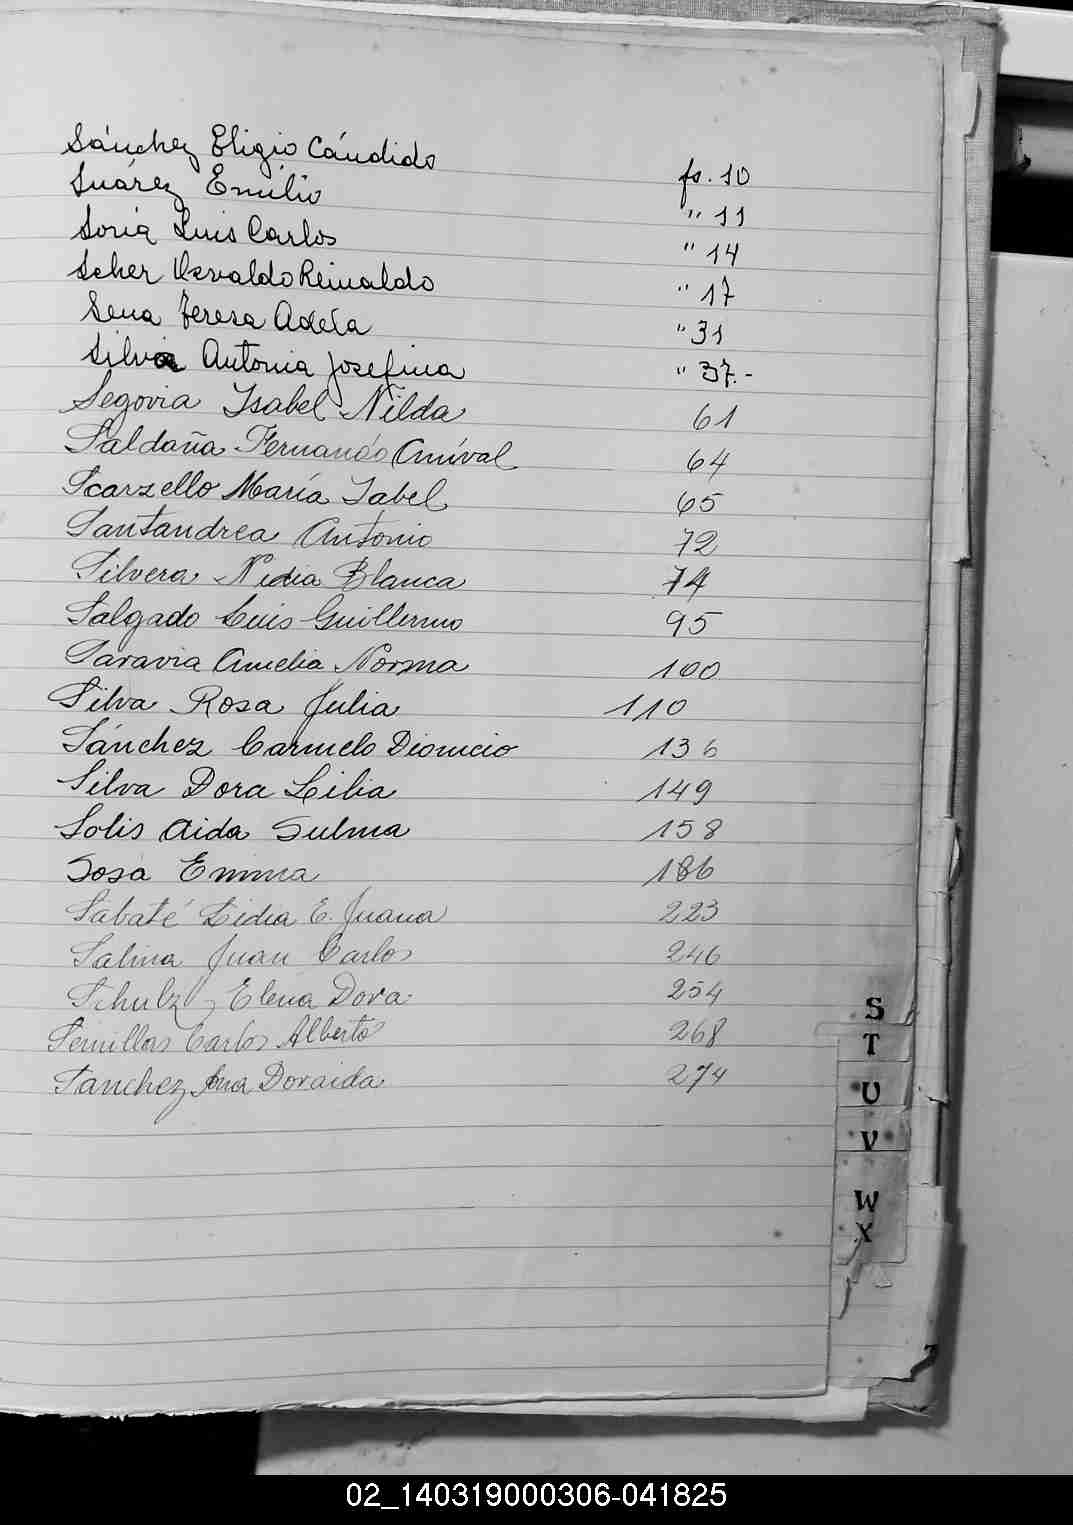 Sánchez Eligio Cándido fs. 10
Suárez Emilio " 11
Soria Luis Carlos " 14
Scher Osvaldo Reinaldo " 17
Sena Teresa Adela " 31
Silva Antonia Josefina " 37.-
Segovia Isabel Nilda 61
Saldaña Fernando Anival 64
Scarzello María Isabel 65
Santandrea Antonio 72
Silvera Nidia Blanca 74
Salgado Luis Guillermo 95
Saravia Amelia Norma 100
Silva Rosa Julia 110
Sánchez Carmelo Dionicio 136
Silva Dora Lilia 149
Solis Aida Sulma 158
Sosa Emma 186
Sabaté Lidia E. Juana 223
Salina Juan Carlos 246
Schulz Elena Dora 254
Carlos Alberto 268
Sanchez Ana Doraida 274
S
T
U
V
W
X
02_140319000306-041825